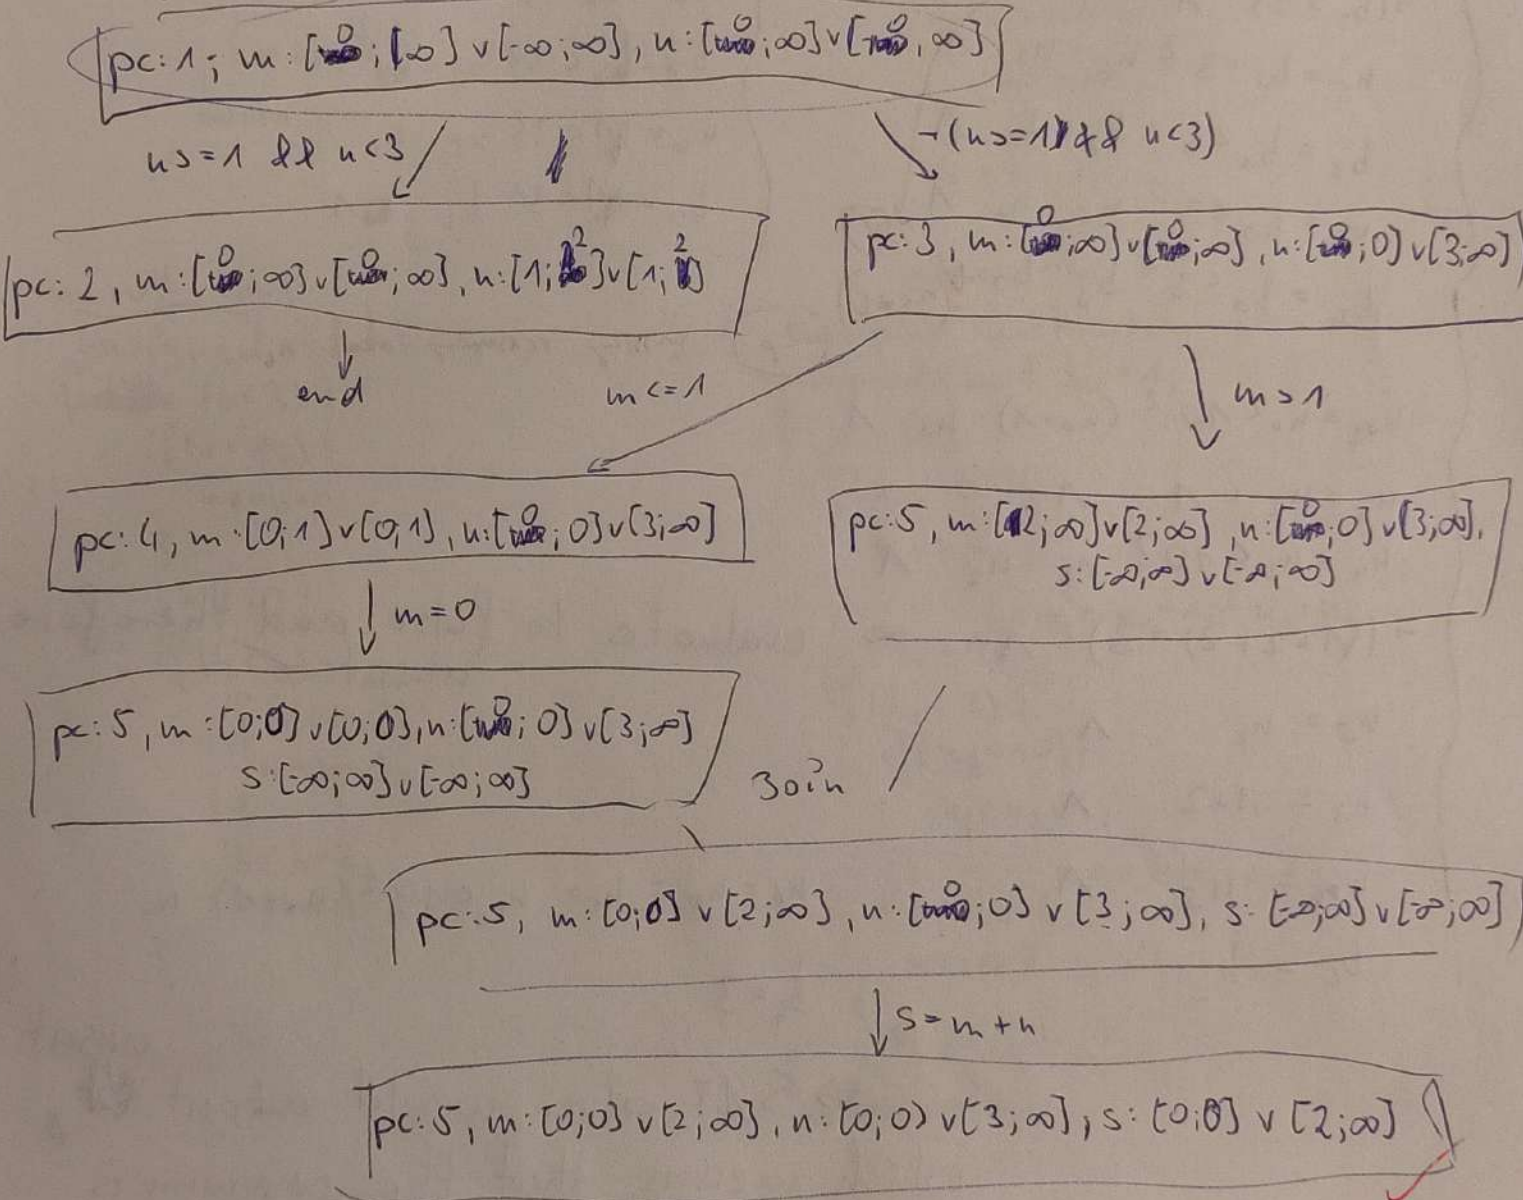 pc:1; m:[0;∞]v[-∞;∞], n:[0;∞]v[0,∞]
n>=1 && n<3
¬(n>=1 && n<3)
pc: 2, m:[0;∞]v[0;∞], n:[1;2]v[1;2]
pc: 3, m:[0;∞]v[0;∞], n:[0;0]v[3;∞]
end
m<=1
m>1
pc: 4, m:[0;1]v[0,1], n:[0;0]v[3;∞]
pc:5, m:[2;∞]v[2;∞], n:[0;0]v[3;∞],
s:[-∞;∞]v[-∞;∞]
m=0
pc: 5, m:[0;0]v[0;0], n:[0;0]v[3;∞]
s:[-∞;∞]v[-∞;∞]
Join
pc:5, m:[0;0]v[2;∞], n:[0;0]v[3;∞], s:[-∞;∞]v[-∞;∞]
s=m+n
pc:5, m:[0;0]v[2;∞], n:[0;0]v[3;∞], s:[0;0]v[2;∞]